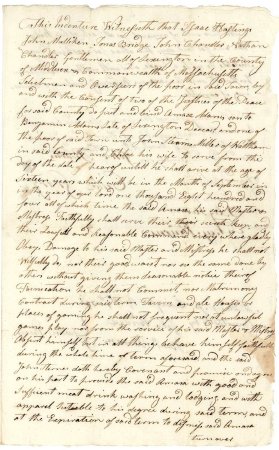 This Indenture Witnesseth that Isaac Hastings
John Mulliken Jonas Bridge John Chandler & Nathan
Chandler Gentlemen of Lexington in the County
of Middlesex & Commonwealth of Massachusetts
Selectmen and Overseers of the poor in said Town by
and with the Consent of two of the Justices of the Peace
for said County do put and bind Amasa Adams son to
Benjamin Adams late of Lexington Deceast and one of
the poor of said Town unto John Stearns Miles of Waltham
in said County and his wife to serve from the
day of the date hereof untill he shall arive at the age of
Sixteen years which will be in the Month of September in
the year of our Lord one thousand Eight hundred and
four all of which time he the said Amasa his said Master &
Mistress Faithfully shall serve their secrets keep
their Lawful and Reasonable Commands every where gladly
Obay Damage to his said Master and Mistress he shall not
Wilfully do not their goods wast nor see the same done by
others without giveing them seasonable notice thereof
Fornecation he shall not Commit, nor Matrimony
Contract during said term Taverns and ale Houses or
places of gameing he shall not frequent nor at unlawful
games play nor from the service of his said Master & Mistress
Absent himself but in all things behave himself faithfully
during the whole time or term aforesaid and the said
John doth hereby Covenant and promise and agree
on his part to provide the said Amasa with good and
sufficient meat drink washing and lodging and with
apparel Suitable to his degree during said term, and
at the Expiration of said term to dismiss said Amasa